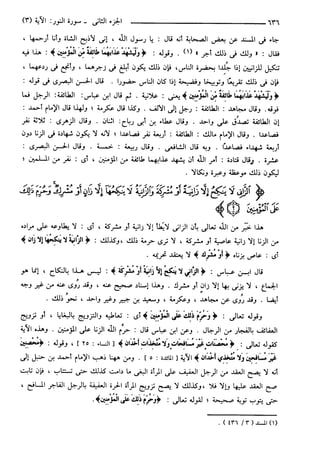 ٦٣٦ الجزء الثانى ـ سورة النور: الآية (٣)
جاء فى المسند عن بعض الصحابة أنه قال : يا رسول الله ، إنى لأذبح الشاة وأنا أرحمها ،
فقال : « ولك فى ذلك أجر » (١). وقوله : ﴿ وَلْيَشْهَدْ عَذَابَهُمَا طَائِفَةٌ مِّنَ الْمُؤْمِنِينَ ﴾ : هذا فيه
تنكيل للزانيين إذا جلدا بحضرة الناس، فإن ذلك يكون أبلغ فى زجرهما ، وأنجع فى ردعهما ،
فإن فى ذلك تقريعًا وتوبيخا وفضيحة إذا كان الناس حضورا . قال الحسن البصرى فى قوله :
﴿ وَلْيَشْهَدْ عَذَابَهُمَا طَائِفَةٌ مِّنَ الْمُؤْمِنِينَ ﴾ يعنى : علانية . ثم قال ابن عباس: الطائفة: الرجل فما
فوقه. وقال مجاهد : الطائفة : رجل إلى الألف. وكذا قال عكرمة ؛ ولهذا قال الإمام أحمد :
إن الطائفة تصدُق على واحد . وقال عطاء بن أبى رباح: اثنان . وقال الزهرى : ثلاثة نفر
فصاعدا . وقال الإمام مالك : الطائفة : أربعة نفر فصاعدا ؛ لأنه لا يكون شهادة فى الزنا دون
أربعة شهداء فصاعدًا. وبه قال الشافعى . وقال ربيعة : خمسة . وقال الحسن البصرى :
عشرة . وقال قتادة : أمر الله أن يشهد عذابهما طائفة من المؤمنين ، أى : نفر من المسلمين ؛
ليكون ذلك موعظة وعبرة ونكالا .
﴿ الزَّانِي لَا يَنكِحُ إِلَّا زَانِيَةً أَوْ مُشْرِكَةً وَالزَّانِيَةُ لَا يَنكِحُهَا إِلَّا زَانٍ أَوْ مُشْرِكٌ وَحُرِّمَ ذَلِكَ
عَلَى الْمُؤْمِنِينَ ﴾
هذا خَبَر من الله تعالى بأن الزانى لا يَطأ إلا زانية أو مشركة ، أى : لا يطاوعه على مراده
من الزنا إلا زانية عاصية أو مشركة ، لا ترى حرمة ذلك ، وكذلك : ﴿ الزَّانِيَةُ لَا يَنكِحُهَا إِلَّا زَانٍ ﴾
أى : عاص بزناه ﴿ أَوْ مُشْرِكٌ ﴾ لا يعتقد تحريمه .
قال ابن عباس : ﴿ الزَّانِي لَا يَنكِحُ إِلَّا زَانِيَةً أَوْ مُشْرِكَةً ﴾ : ليس هذا بالنكاح ، إنما هو
الجماع ، لا يزنى بها إلا زان أو مشرك . وهذا إسناد صحيح عنه ، وقد رُوى عنه من غير وجه
أيضا . وقد رُوى عن مجاهد ، وعكرمة ، وسعيد بن جبير وغير واحد ، نحوُ ذلك .
وقوله تعالى : ﴿ وَحُرِّمَ ذَلِكَ عَلَى الْمُؤْمِنِينَ ﴾ أى : تعاطيه والتزويج بالبغايا ، أو تزويج
العفائف بالفجار من الرجال . وعن ابن عباس قال : حرَّم الله الزنا على المؤمنين . وهذه الآية
كقوله تعالى : ﴿ مُحْصَنَاتٍ غَيْرَ مُسَافِحَاتٍ وَلَا مُتَّخِذَاتِ أَخْدَانٍ ﴾ [النساء : ٢٥] ، وقوله : ﴿ مُحْصِنِينَ
غَيْرَ مُسَافِحِينَ وَلَا مُتَّخِذِي أَخْدَانٍ ﴾ [المائدة : ٥] . ومن ههنا ذهب الإمام أحمد بن حنبل إلى
أنه لا يصح العقد من الرجل العفيف على المرأة البغى ما دامت كذلك حتى تستتاب ، فإن تابت
صح العقد عليها وإلا فلا ، وكذلك لا يصح تزويج المرأة الحرة العفيفة بالرجل الفاجر المسافح ،
حتى يتوب توبة صحيحة ؛ لقوله تعالى : ﴿ وَحُرِّمَ ذَلِكَ عَلَى الْمُؤْمِنِينَ ﴾.
(١) المسند ( ٣ / ٤٣٦ ) .